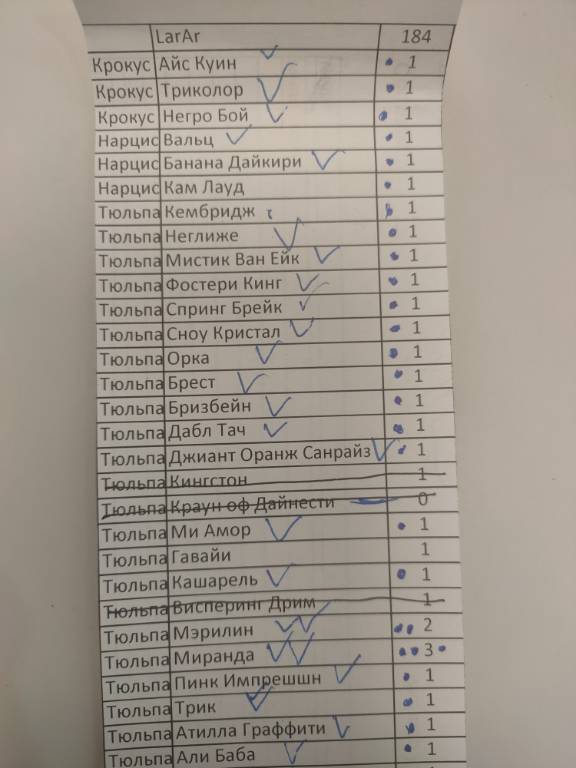 LarAr 184
Крокус Айс Куин 1
Крокус Триколор 1
Крокус Негро Бой 1
Нарцис Вальц 1
Нарцис Банана Дайкири 1
Нарцис Кам Лауд 1
Тюльпа Кембридж 1
Тюльпа Неглиже 1
Тюльпа Мистик Ван Ейк 1
Тюльпа Фостери Кинг 1
Тюльпа Спринг Брейк 1
Тюльпа Сноу Кристал 1
Тюльпа Орка 1
Тюльпа Брест 1
Тюльпа Бризбейн 1
Тюльпа Дабл Тач 1
Тюльпа Джиант Оранж Санрайз 1
Тюльпа Кингстон 1
Тюльпа Краун оф Дайнести 0
Тюльпа Ми Амор 1
Тюльпа Гавайи 1
Тюльпа Кашарель 1
Тюльпа Висперинг Дрим 1
Тюльпа Мэрилин 2
Тюльпа Миранда 3
Тюльпа Пинк Импрешшн 1
Тюльпа Трик 1
Тюльпа Атилла Граффити 1
Тюльпа Али Баба 1